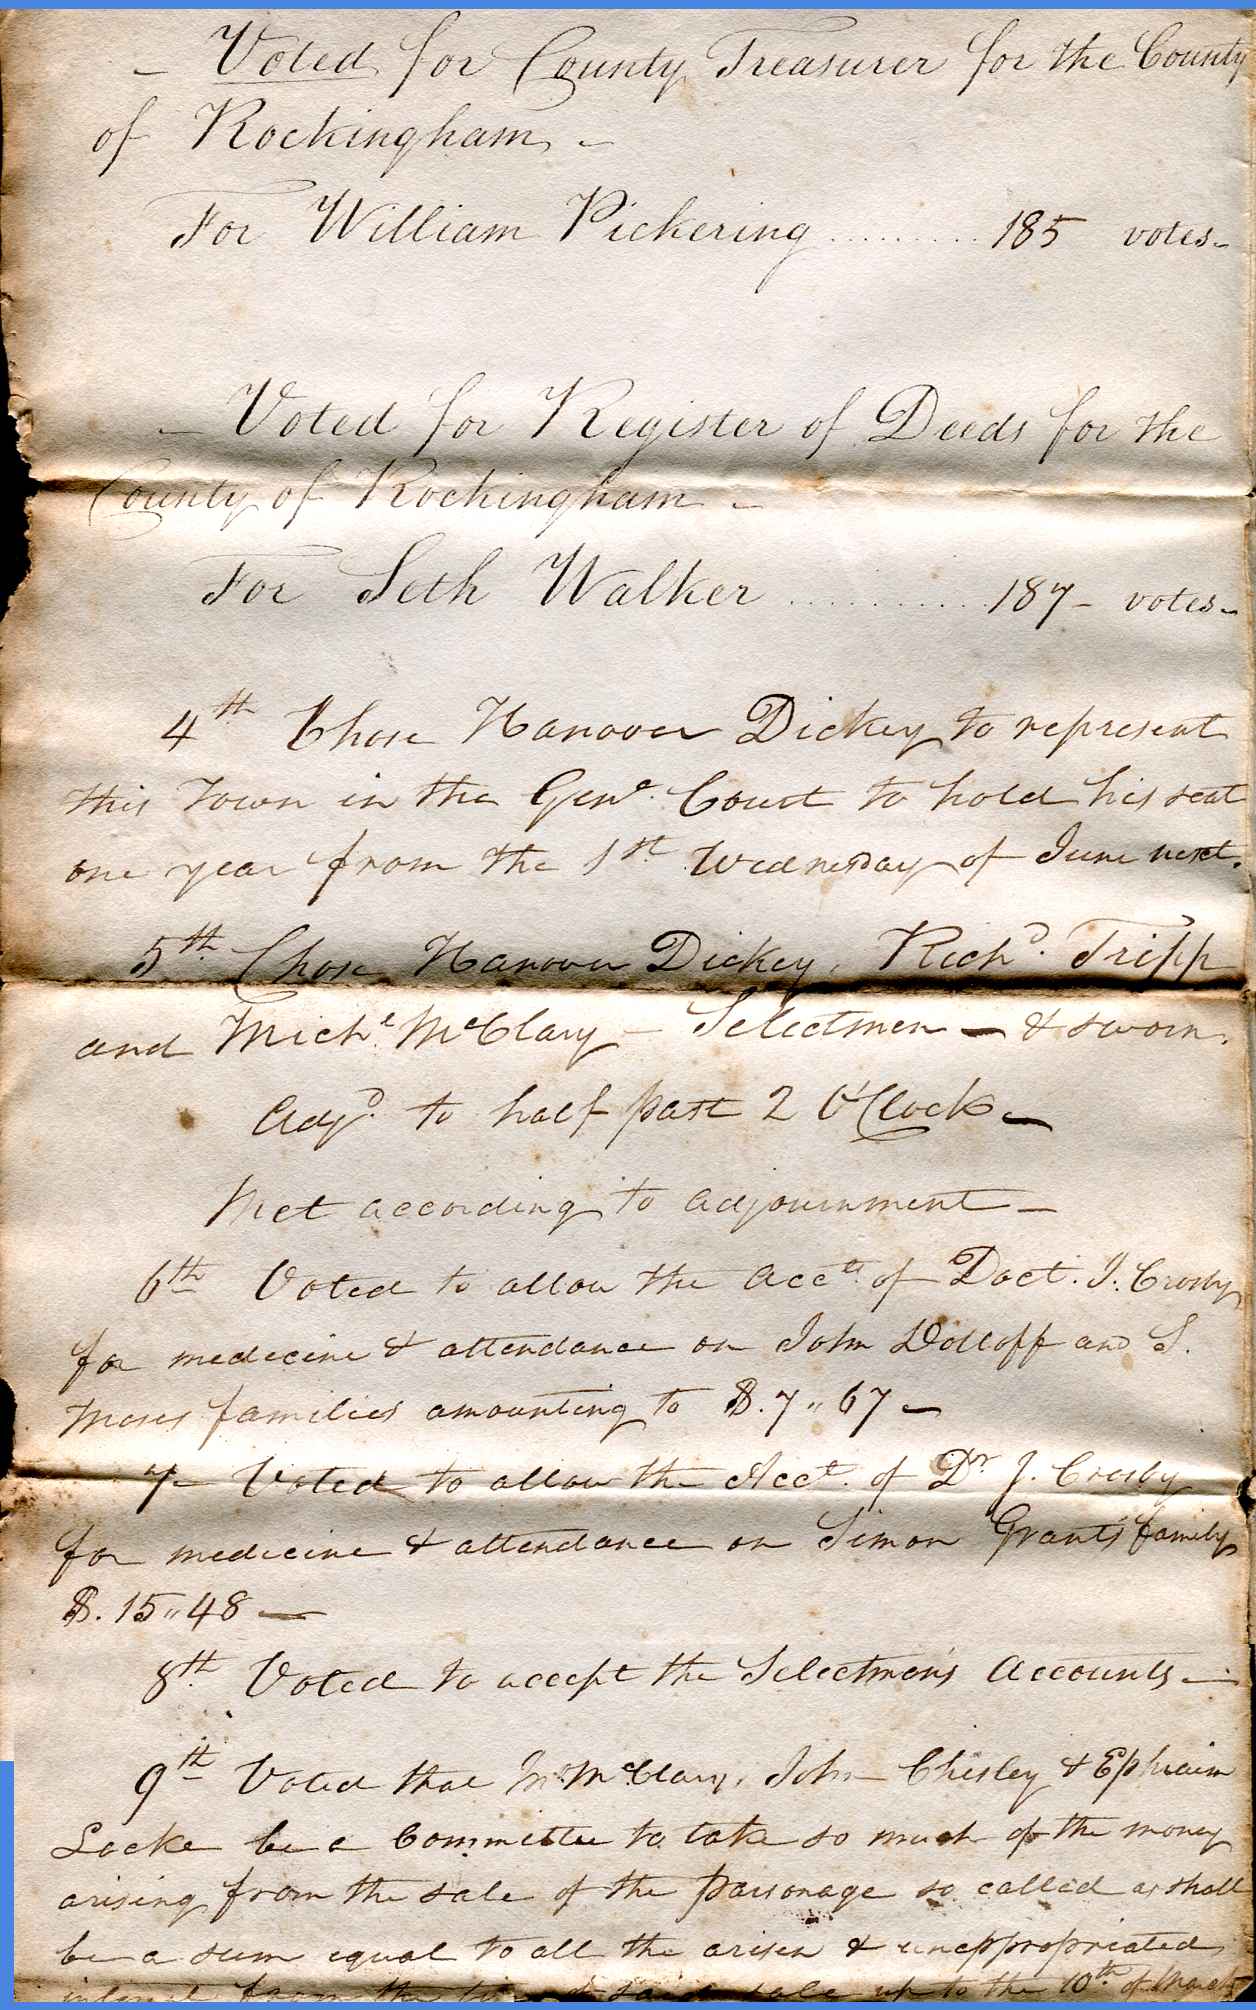 – Voted for County Treasurer for the County
of Rockingham. –
For William Pickering ......... 185 votes –
– Voted for Register of Deeds for the
County of Rockingham –
For Seth Walker ........... 187 – votes –
4th Chose Hanover Dickey to represent
this Town in the Genl. Court to hold his seat
one year from the 1st. Wednesday of June next.
5th. Chose Hanover Dickey, Richd. Tripp
and Michl. McClary – Selectmen – & sworn.
Adjd. to half past 2 O'Clock –
Met according to adjournment –
6th Voted to allow the acct. of Doct. J. Crosby
for medicine & attendance on John Dolloff and S.
Moses families amounting to $.7,,67 –
7– Voted to allow the Acct. of Dr J. Crosby
for medicine & attendance on Simon Grant's family
$.15,,48 –
8th. Voted to accept the Selectmen's Accounts –
9th Voted that McClary, John Chesley & Ephraim
Locke be a Committee to take so much of the money
arising from the sale of the parsonage so called as shall
be a sum equal to all the arisen & unappropriated
interest from the time of said sale up to the 10th of March